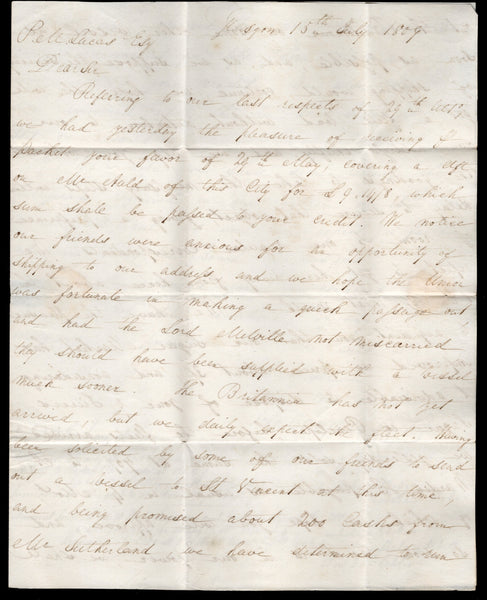 Glasgow 15th July 1809
P & W Lucas Esq
Dear Sir
Referring to our last respects of 29th Ulto,
we had yesterday the pleasure of receiving
Packet your favor of 29th May covering a dft
on Mr Auld of this City for £ 9.17/8 which
sum shall be passed to your credit. We notice
our friends were anxious for an opportunity of
shipping to our address and we hope the Union
was fortunate in making a quick passage out,
and had the Lord Melville not miscarried
they should have been supplied with a vessel
much sooner. The Britannia has not yet
arrived, but we daily expect the fleet. Having
been solicited by some of our friends to send
out a vessel to St Vincent at this time,
and being promised about 200 Casks from
Mr Sutherland we have determined to